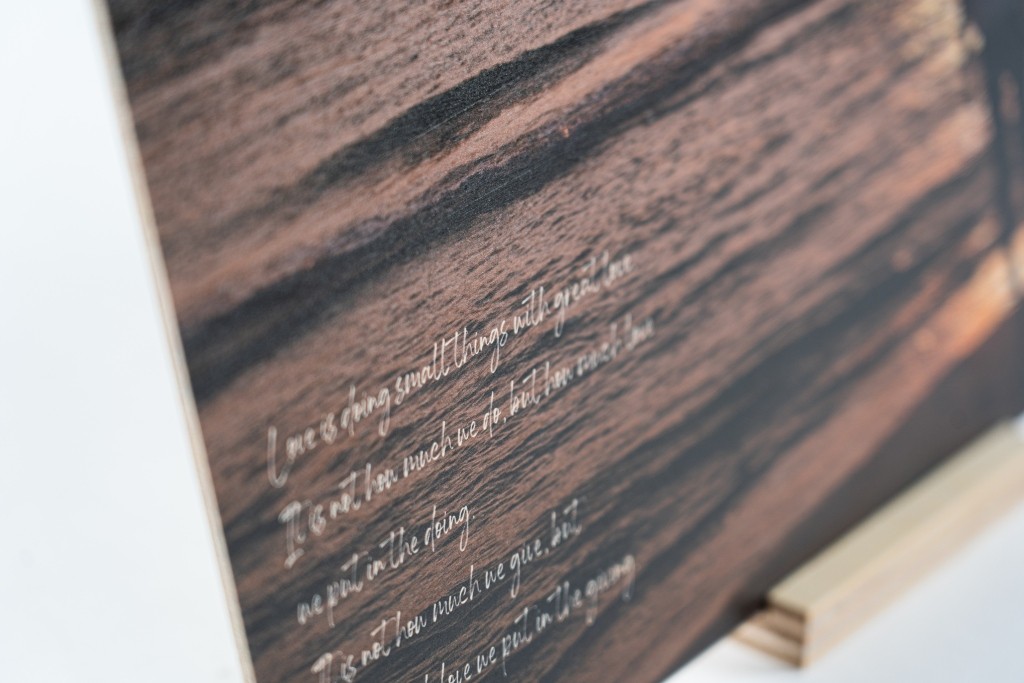 Love is doing small things with great love
It is not how much we do, but how much love
we put in the doing.
It is not how much we give, but
love we put in the giving